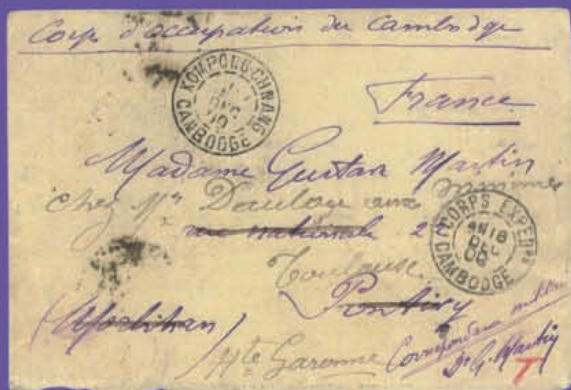 Corps d'occupation du Cambodge
KOMPONG-CHNANG
DEC
CAMBODGE
France
Madame Gustave Martin
chez Mr Daulon aux minimes
rue nationale 2
CORPS EXPEDre
18
DEC
CAMBODGE
Toulouse
Pontivy
(Morbihan)
Hte Garonne
Correspondance militaire
Dr G. Martin
T